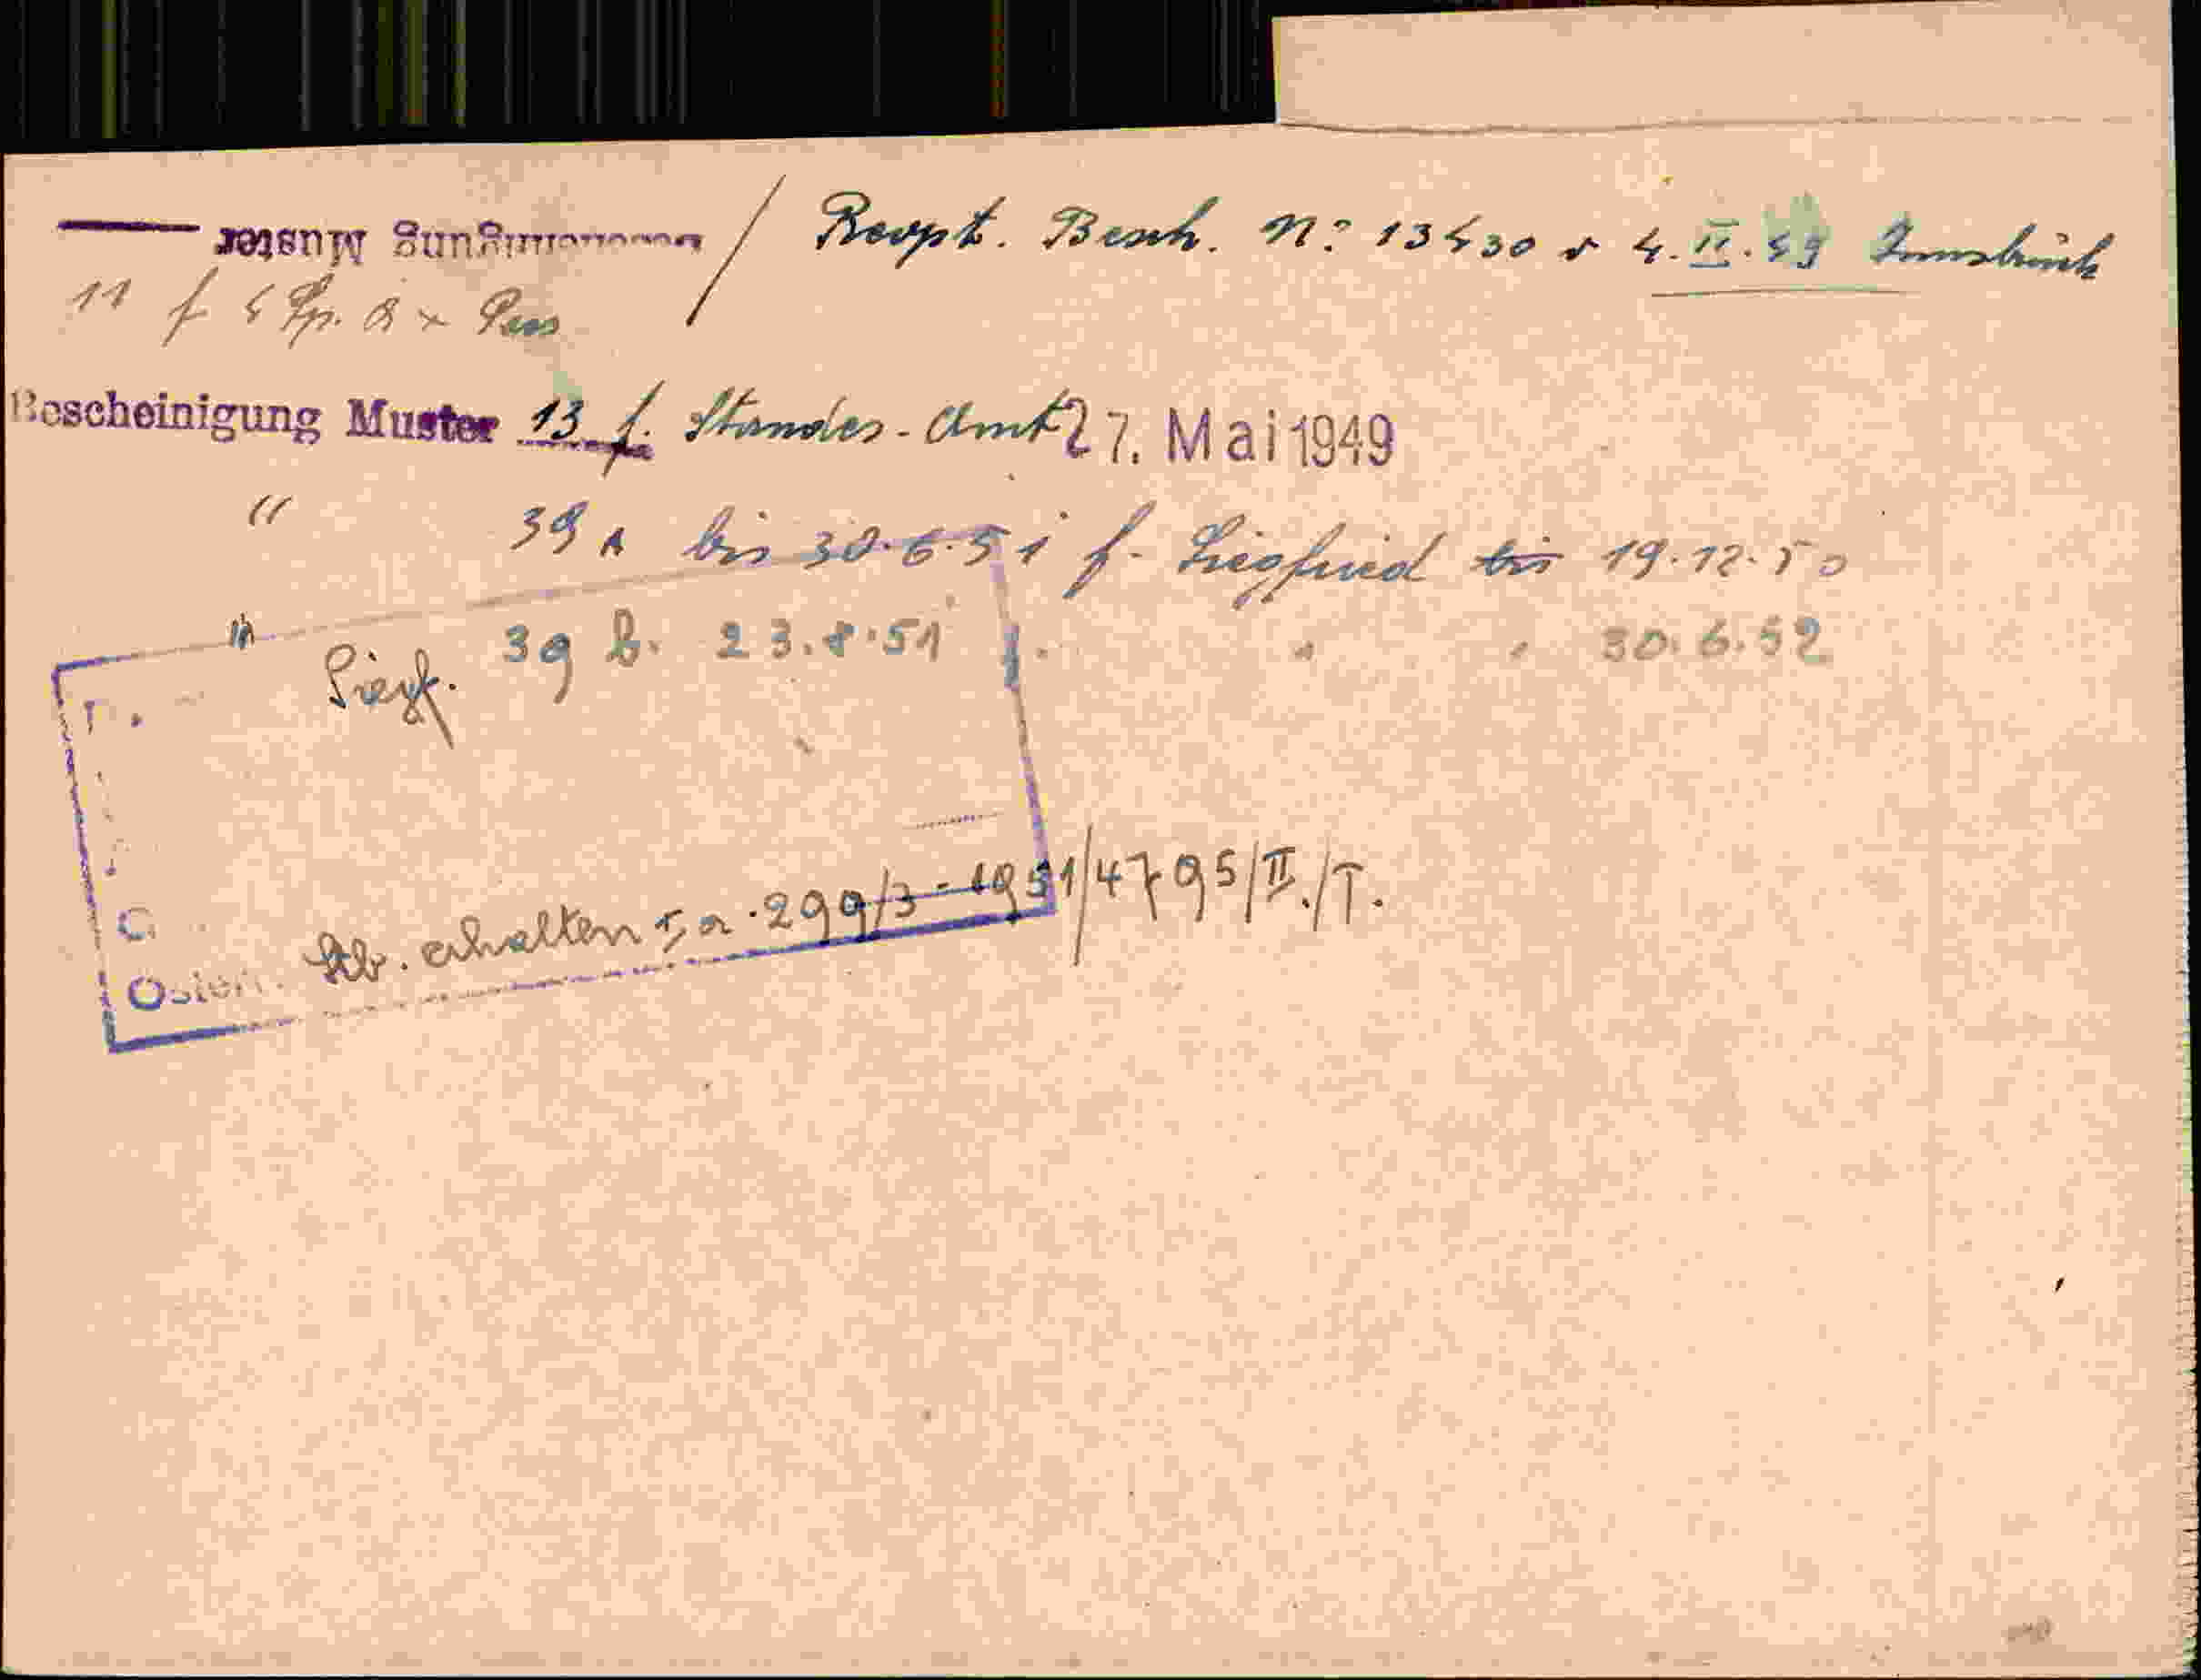 Bescheinigung Muster / Rcvpt. Besch. No: 13430 v 4.II.49 Innsbruck
11 f Pass
Bescheinigung Muster 13 f. Standes-Amt 27. Mai 1949
" 39 A bis 30.6.51 f. Siegfried bis 19.12.50
" Siegf. 39 b. 23.8.51 f. " " 30.6.52
Stb. erhalten 299/3-1951/4795/II./T.
Österr.